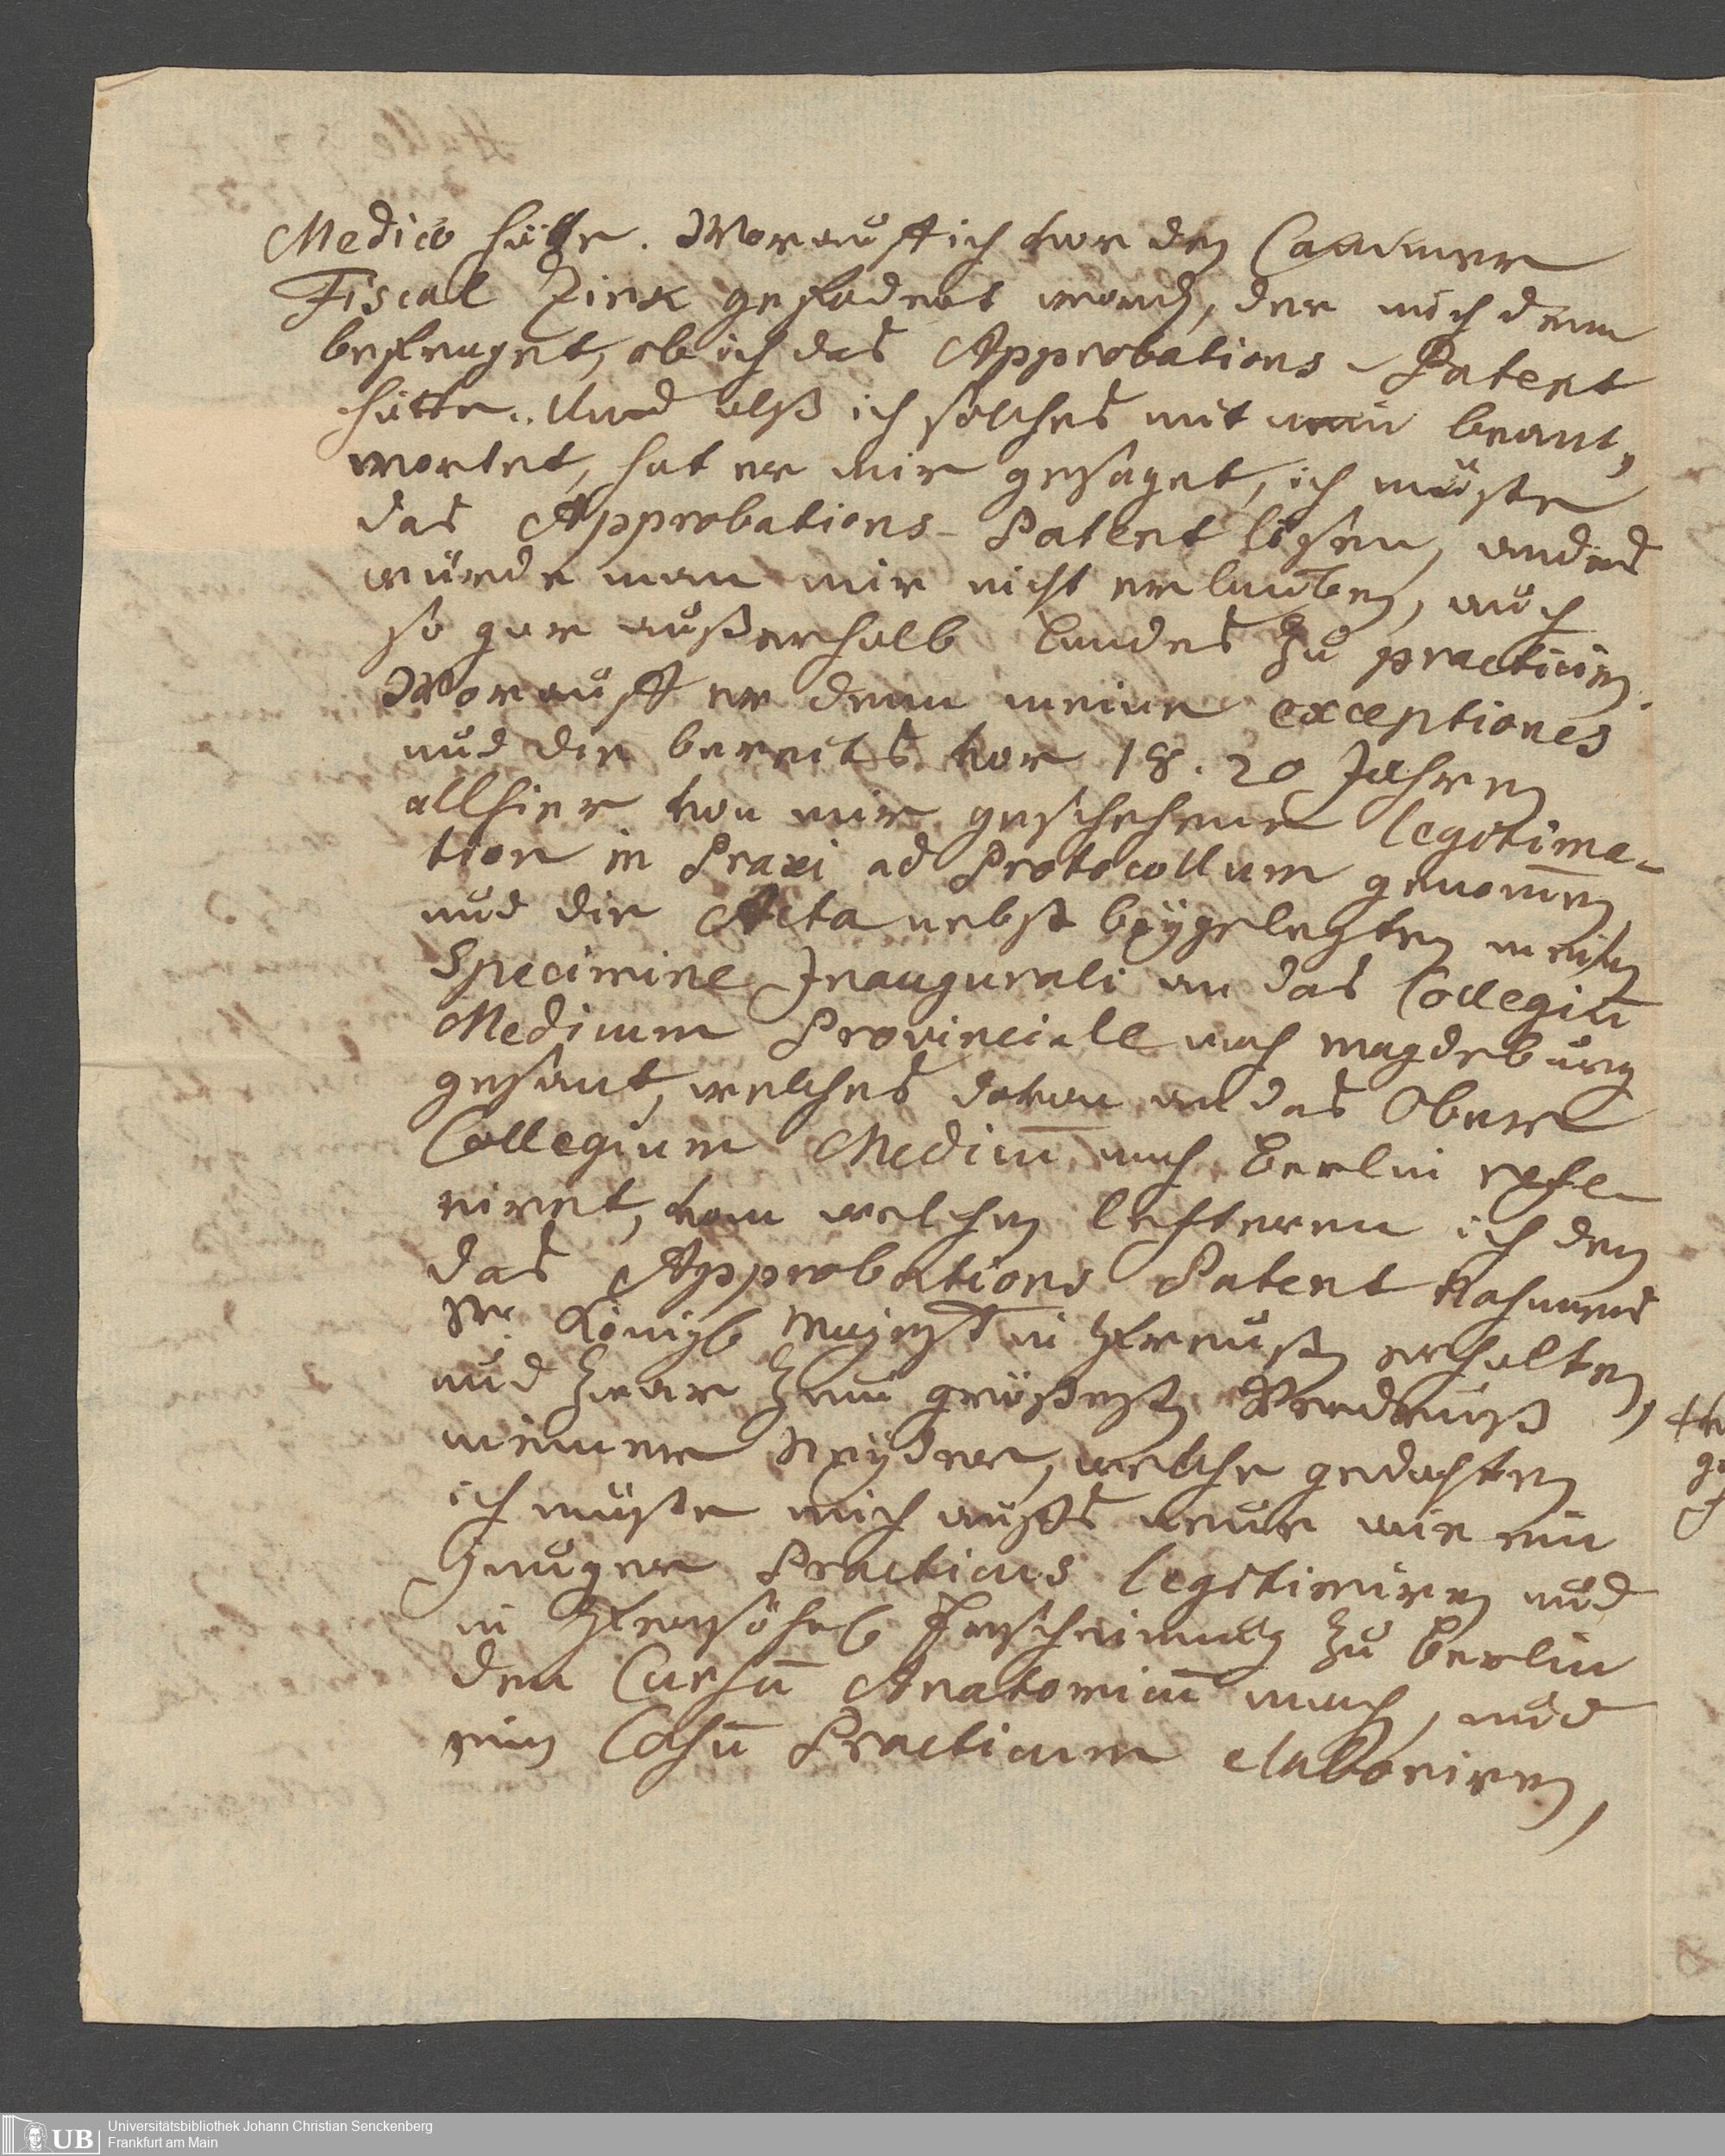 Medico hätte. Worauff ich vor den Cammer
Fiscal Zink gefodert word, der mich denn
befraget, ob ich das Approbations-Patent
hätte. Und alß ich solches mit nein beant,,
wortet, hat er mir gesaget, ich müste
das Approbations-Patent lösen, anders
würde man mir nicht erlauben, auch
so gar außerhalb Landes zu practiciren.
Worauff er denn meine exceptiones
und die bereits vor 18. 20 Jahren
allhier von mir geschehene legitima-
tion in Praxi ad Protocollum genom̄en
und die Acta nebst beÿgelegten meinen
Specimine Inaugurali an das Collegiū
Medicum Provinciale nach Magdeburg
gesant, welches davon an das Ober
Collegium Medicū nach Berlin refe-
riret, von welchen letzteren ich den
das Approbations Patent Nahmens
Sr. Königl Mayest in Preußen erhalten,
und zwar zum grösesten Verdruß
meiner Neÿder, welche gedachten
ich müste mich auffs neue wie ein
Junger Practicus legitimiren und
in Persöhnl Erscheinung zu Berlin
den Cursū Anatomicū mach, und
ein Casū Practicum elaboriren,
Universitätsbibliothek Johann Christian Senckenberg
Frankfurt am Main
UB